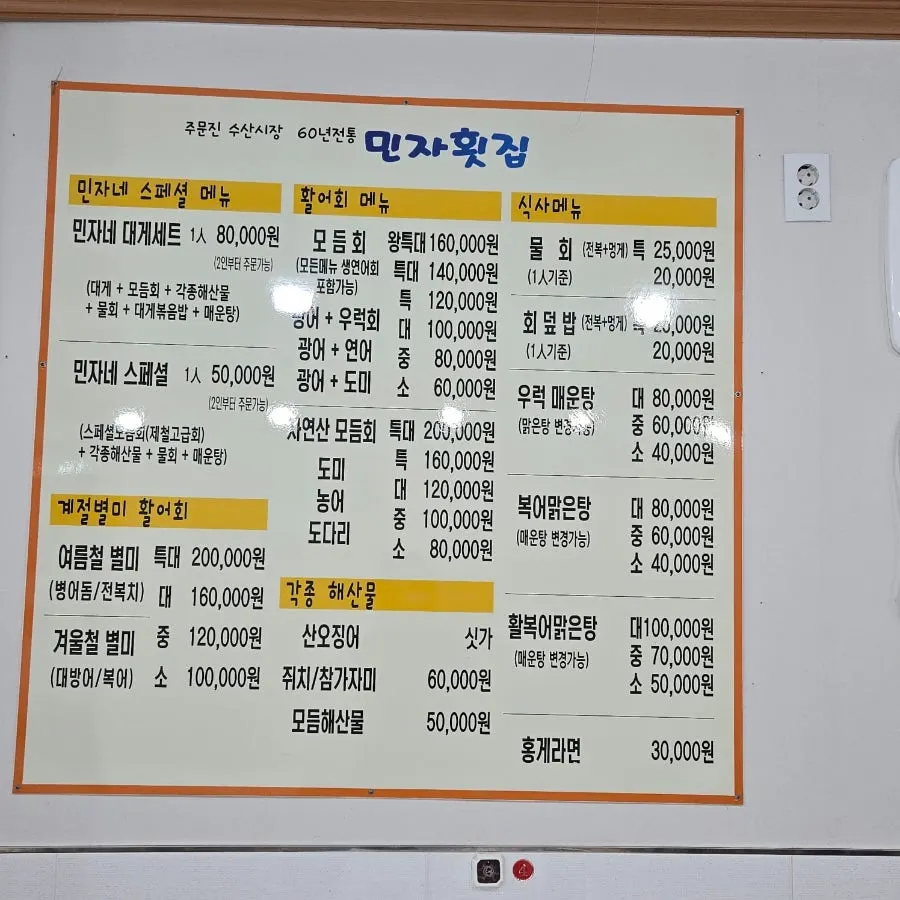 주문진 수산시장 60년전통 민자횟집
민자네 스페셜 메뉴
민자네 대게세트 1人 80,000원
(2인부터 주문가능)
(대게 + 모듬회 + 각종해산물
+ 물회 + 대게볶음밥 + 매운탕)
민자네 스페셜 1人 50,000원
(2인부터 주문가능)
(스페셜모듬회(제철고급회)
+ 각종해산물 + 물회 + 매운탕)
계절별미 활어회
여름철 별미 특대 200,000원
(병어돔/전복치) 대 160,000원
겨울철 별미 중 120,000원
(대방어/복어) 소 100,000원
활어회 메뉴
모듬회 왕특대 160,000원
(모든메뉴 생연어회 특대 140,000원
포함가능) 특 120,000원
광어 + 우럭회 대 100,000원
광어 + 연어 중 80,000원
광어 + 도미 소 60,000원
자연산 모듬회 특대 200,000원
도미 특 160,000원
농어 대 120,000원
도다리 중 100,000원
소 80,000원
각종 해산물
산오징어 싯가
쥐치/참가자미 60,000원
모듬해산물 50,000원
식사메뉴
물 회 (전복+멍게) 특 25,000원
(1人기준) 20,000원
회덮밥 (전복+멍게) 특 25,000원
(1人기준) 20,000원
우럭 매운탕 대 80,000원
(맑은탕 변경가능) 중 60,000원
소 40,000원
복어맑은탕 대 80,000원
(매운탕 변경가능) 중 60,000원
소 40,000원
활복어맑은탕 대 100,000원
(매운탕 변경가능) 중 70,000원
소 50,000원
홍게라면 30,000원
4